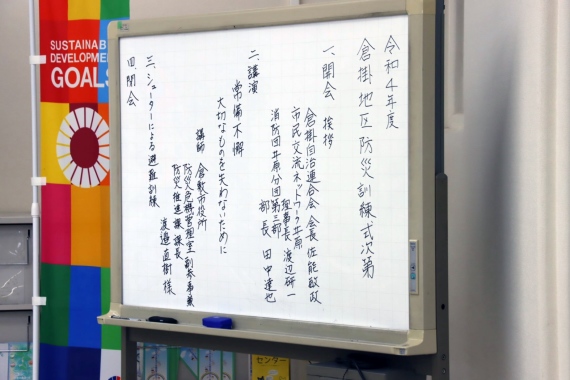 令和4年度
倉掛地区防災訓練式次第
一、開会 挨拶
倉掛自治連合会 会長 佐能政政
市民交流ネットワーク井原
理事長 渡辺研一
消防団井原分団第三部
部長 田中達也
二、講演
常備不懈
大切なものを失わないために
講師 倉敷市役所
防災危機管理室 副参事兼
防災推進課課長
渡邉直樹様
三、シューターによる避難訓練
四、閉会
SUSTAINAB
DEVELOPMEN
GOALS
センター